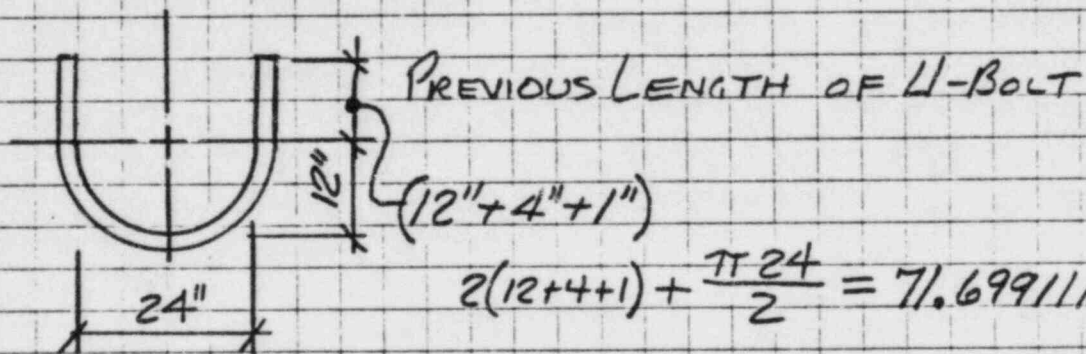 PREVIOUS LENGTH OF U-BOLT
12"
(12"+4"+1")
24"
2(12+4+1) + π24/2 = 71.69911